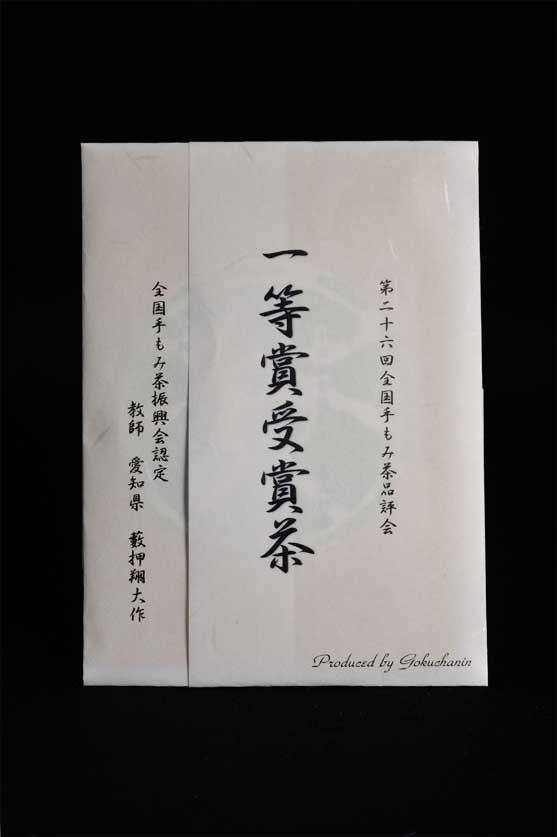 第二十六回全国手もみ茶品評会
一等賞受賞茶
全国手もみ茶振興会認定
教師 愛知県 藪押翔大作
Produced by Gokuchanin